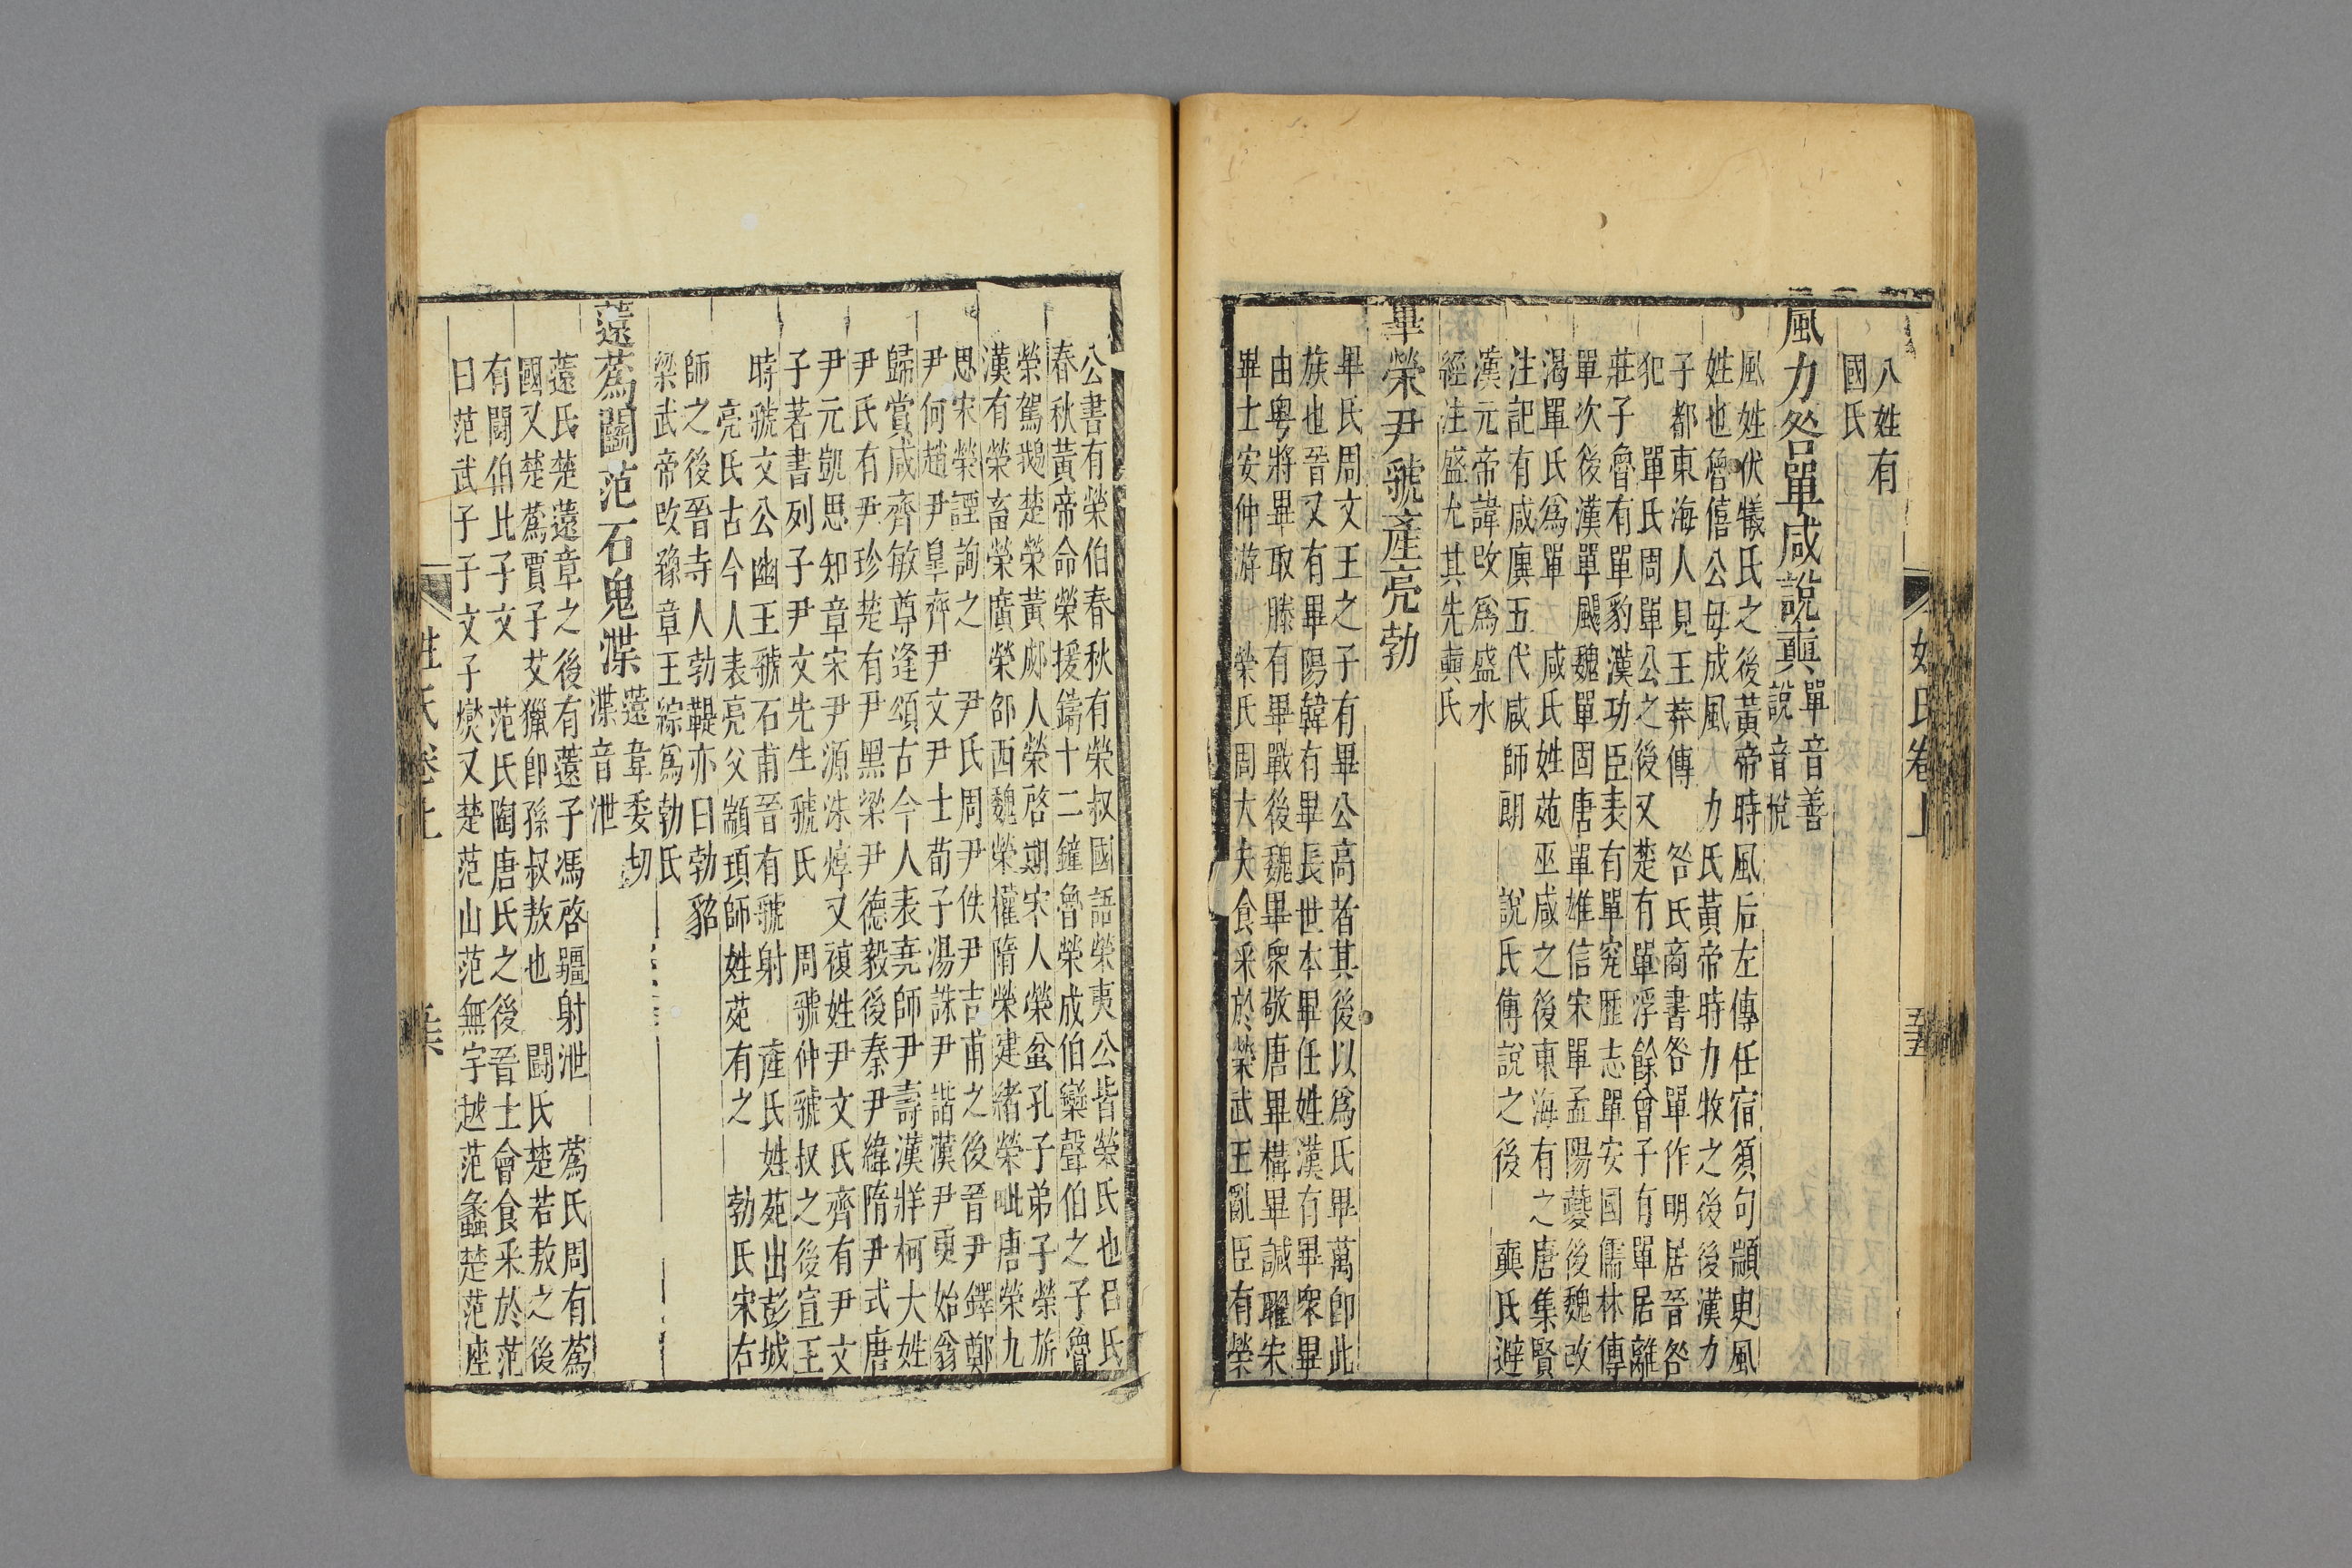 八姓有
國氏
風力咎單咸說㒹單音善
說音悅
風姓伏犧氏之後黃帝時風后左傳任宿須句顓臾風
姓也僖公母成風 力氏黃帝時力牧之後後漢力
子都東海人見王莽傳 咎氏商書咎單作明居晉咎
犯 單氏周單公之後又楚有單浮餘曾子有單居離
莊子魯有單豹漢功臣表有單究歷志單安國儒林傳
單次後漢單單颺魏單固唐單雄信宋單孟陽虁後魏改
渴單氏爲單 咸氏姓苑巫咸之後東海有之唐集賢
注記有咸廙五代咸師朗 說氏傅說之後 㒹氏避
漢元帝諱改爲盛水
經注盛允其先㒹氏
畢榮尹虢產亮勃
畢氏周文王之子有畢公高者其後以爲氏畢萬卽此
族也晉又有畢陽韓有畢長世本畢任姓漢有畢衆畢
由粤將畢取滕有畢戰後魏畢衆敬唐畢構畢諴䍿宋
畢士安仲游 榮氏周大夫食采於榮武王亂臣有榮
姓氏卷上
五五
公書有榮伯春秋有榮叔國語榮夷公皆榮氏也呂氏
春秋黃帝命榮援鑄十二鐘魯榮成伯欒聲伯之子魯
榮駕鵝楚榮黃郕人榮啓期宋人榮盆孔子弟子榮旂
漢有榮畜榮廣榮郃西魏榮權隋榮建緒榮毗唐榮九
思宋榮諲詢之 尹氏周尹佚尹吉甫之後晉尹鐸鄭
尹何趙尹皐齊尹文尹士荀子湯誅尹諧漢尹更始翁
歸賞咸齊敏尊逢頌古今人表堯師尹壽漢牂柯大姓
尹氏有尹珍楚有尹黑梁尹德毅後秦尹緯隋尹式唐
尹元凱思知章宋尹源洙焞又複姓尹文氏齊有尹文
子著書列子尹文先生 虢氏 周虢仲虢叔之後宣王
時虢文公幽王虢石甫晉有虢射 產氏姓苑出彭城
亮氏古今人表亮父顓頊師姓苑有之 勃氏宋右
師之後晉寺人勃鞮亦曰勃貂
梁武帝改豫章王綜爲勃氏
薳蔿鬭范石鬼渫薳韋委切
渫音泄
薳氏楚薳章之後有薳子馮啓疆射泄 蔿氏周有蔿
國又楚蔿賈子艾獵卽孫叔敖也 鬭氏楚若敖之後
有鬭伯比子文 范氏陶唐氏之後晉士會食采於范
曰范武子子文子燮又楚范山范無宇越范蠡楚范座
姓氏卷上